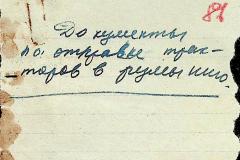 86
Документы
по отправке трак-
торов в румынию.